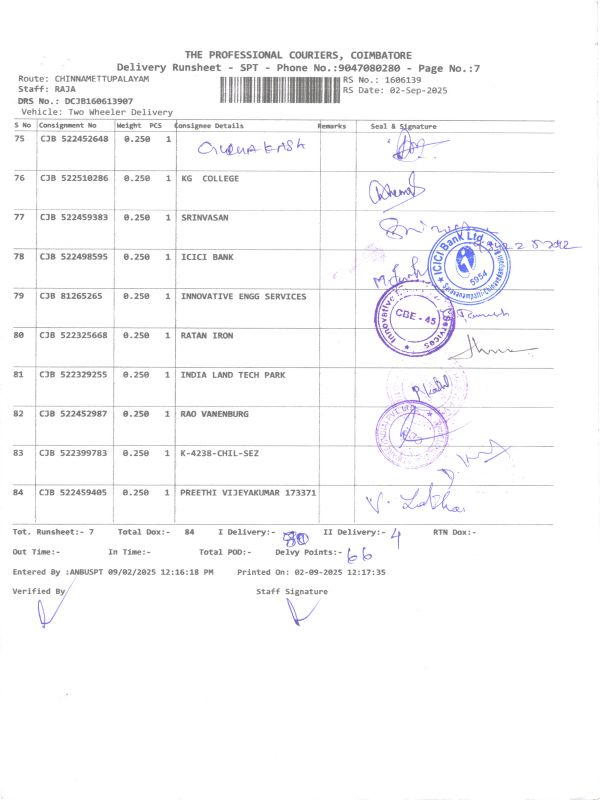 THE PROFESSIONAL COURIERS, COIMBATORE
Delivery Runsheet - SPT - Phone No.:9047080280 - Page No.:7
Route: CHINNAMETTUPALAYAM RS No.: 1606139
Staff: RAJA RS Date: 02-Sep-2025
DRS No.: DCJB160613907
Vehicle: Two Wheeler Delivery
S No Consignment No Weight PCS Consignee Details Remarks Seal & Signature
75 CJB 522452648 0.250 1
76 CJB 522510286 0.250 1 KG COLLEGE
77 CJB 522459383 0.250 1 SRINVASAN
78 CJB 522498595 0.250 1 ICICI BANK
ICICI Bank Ltd.
5954
79 CJB 81265265 0.250 1 INNOVATIVE ENGG SERVICES
Innovative Services
CBE - 45
80 CJB 522325668 0.250 1 RATAN IRON
81 CJB 522329255 0.250 1 INDIA LAND TECH PARK
82 CJB 522452987 0.250 1 RAO VANENBURG
83 CJB 522399783 0.250 1 K-4238-CHIL-SEZ
84 CJB 522459405 0.250 1 PREETHI VIJEYAKUMAR 173371
Tot. Runsheet:- 7 Total Dox:- 84 I Delivery:- 80 II Delivery:- 4 RTN Dox:-
Out Time:- In Time:- Total POD:- Delvy Points:- 66
Entered By :ANBUSPT 09/02/2025 12:16:18 PM Printed On: 02-09-2025 12:17:35
Verified By Staff Signature